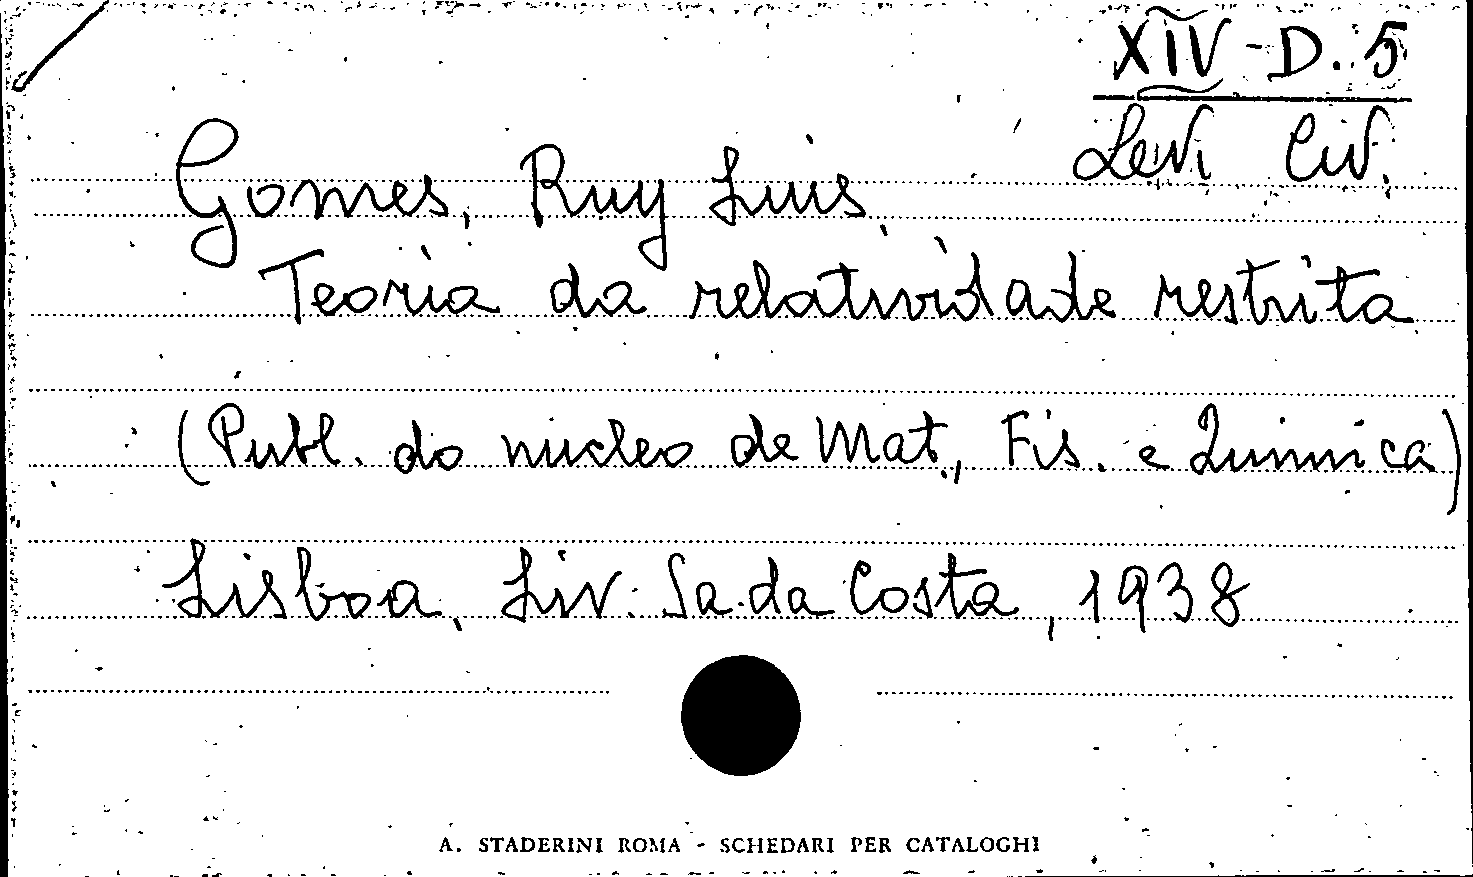 XIV - D. 5
Levi Civ.
Gomes, Ruy Luis
Teoria da relatividade restrita
(Publ. do nucleo de Mat., Fis. e Quimica)
Lisboa, Liv. Sa da Costa, 1938
A. STADERINI ROMA - SCHEDARI PER CATALOGHI